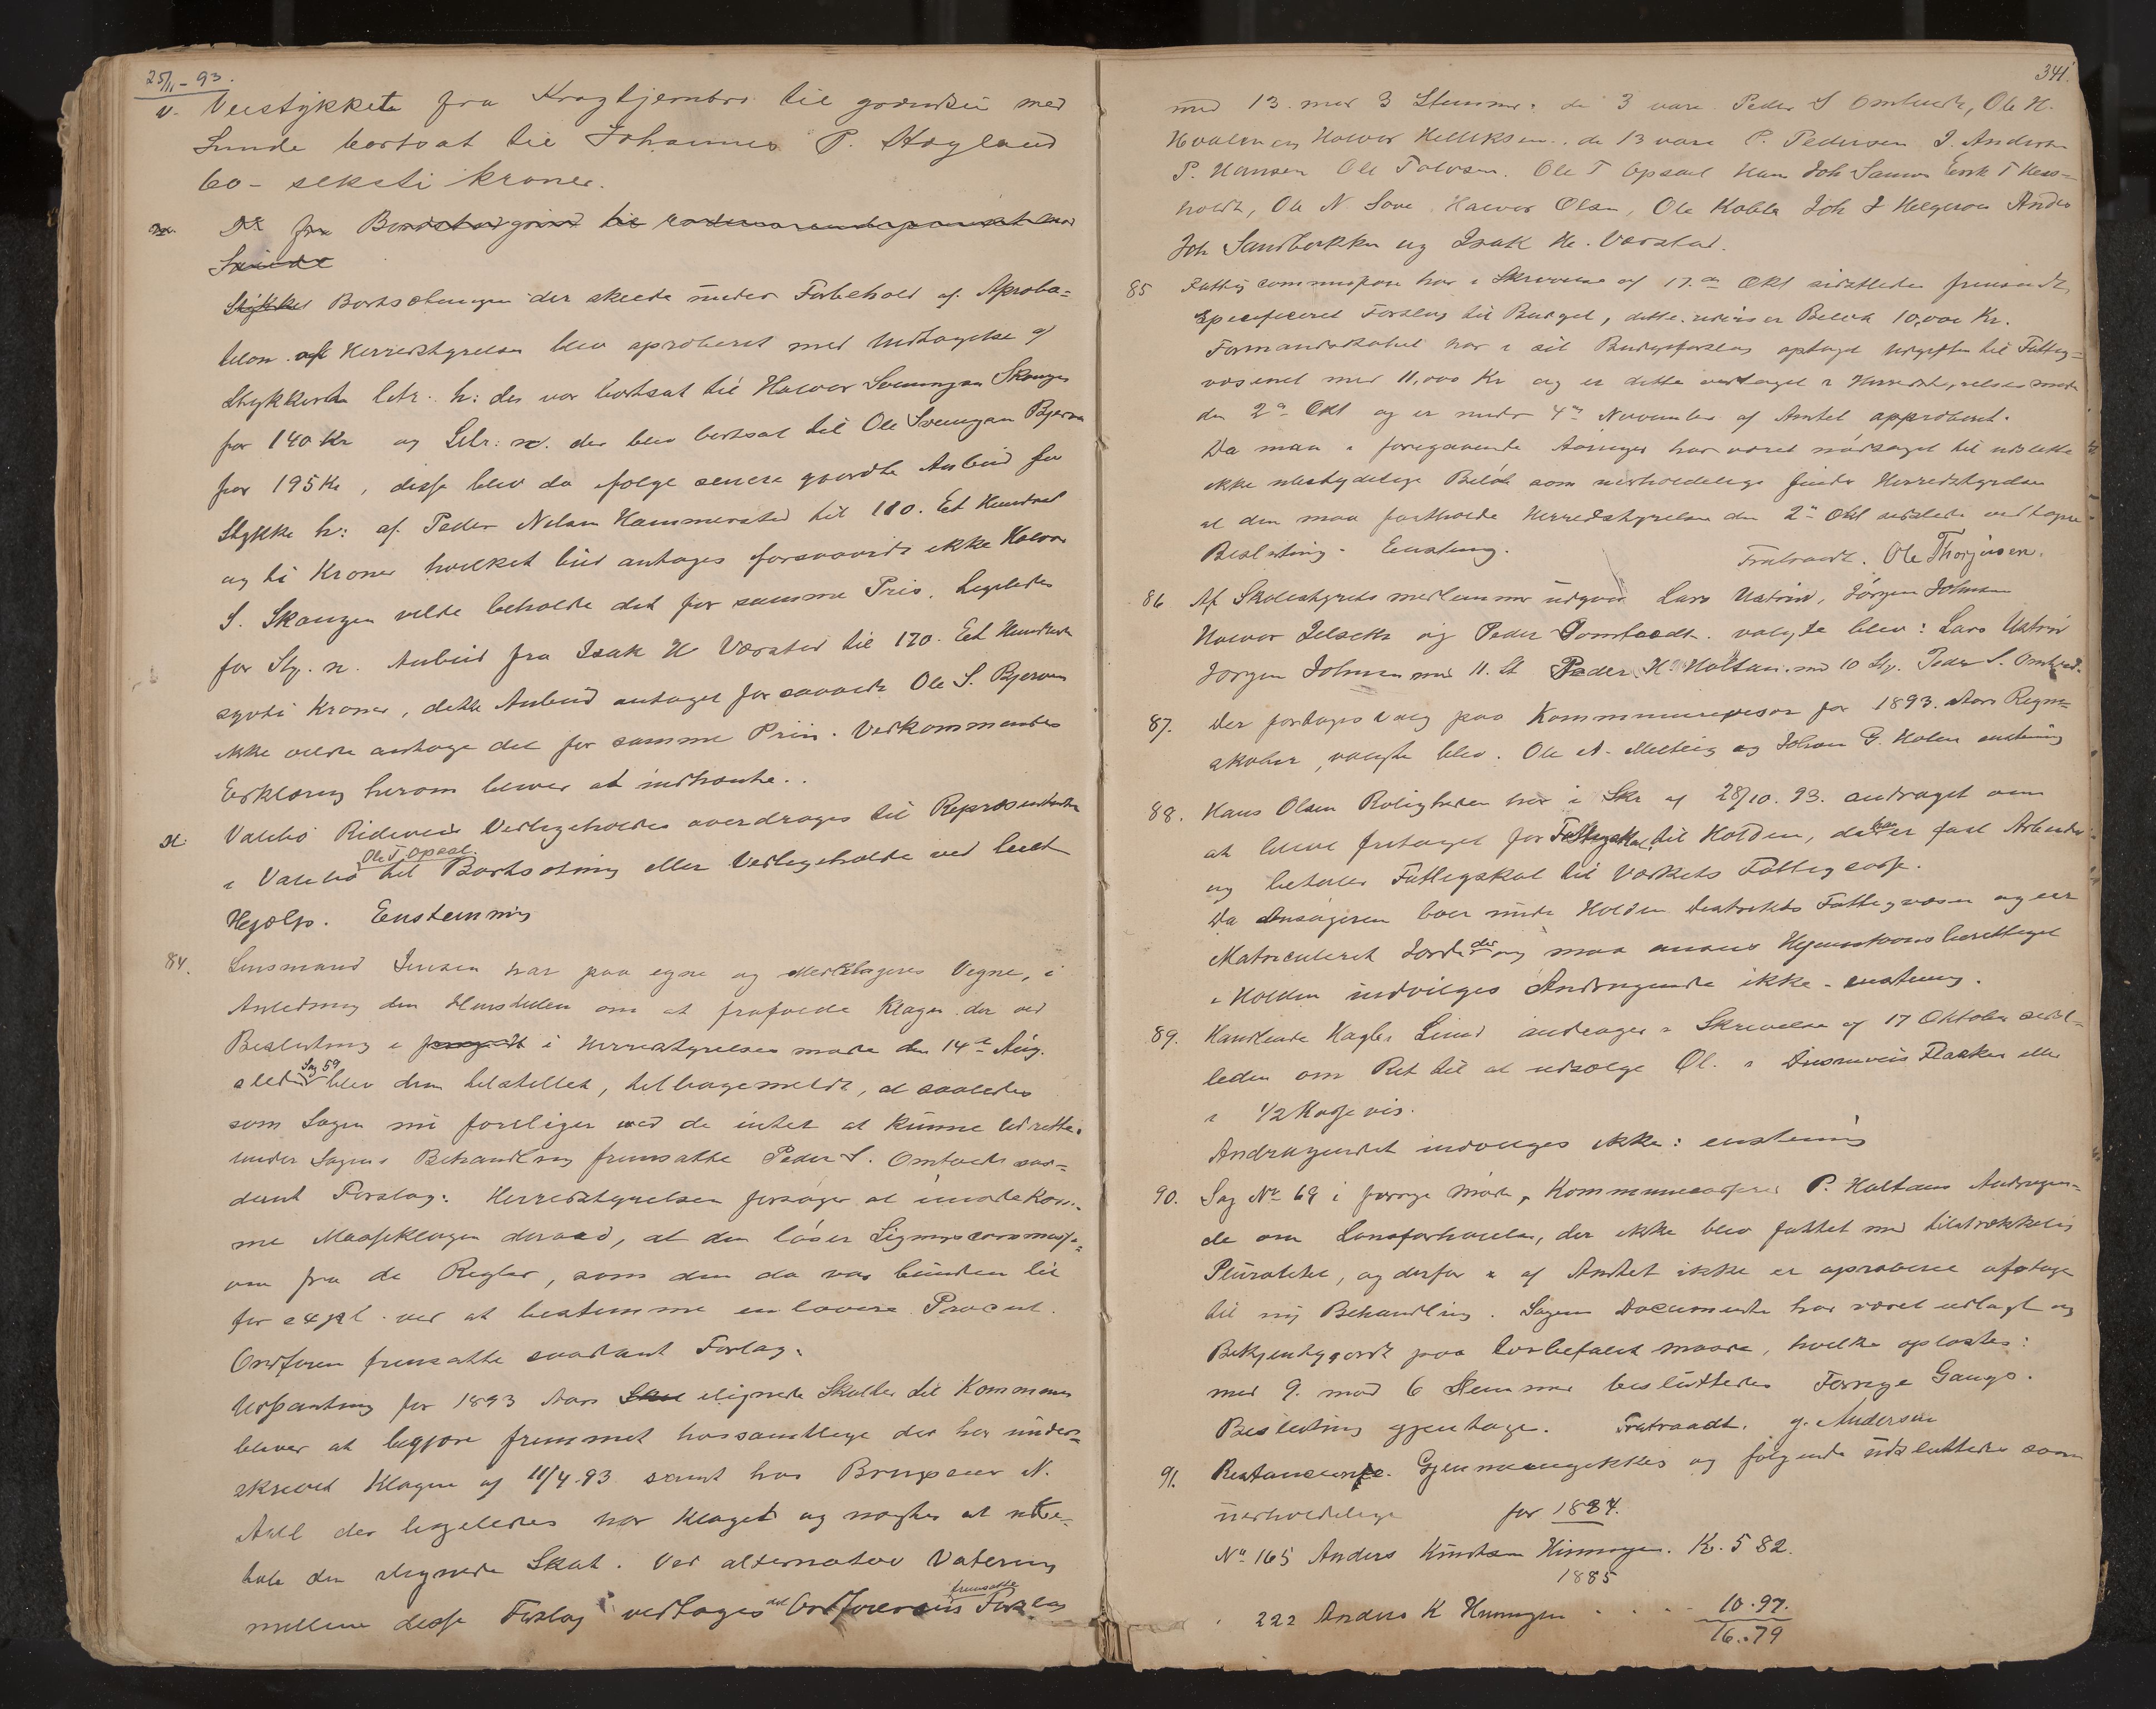 25/11-93.
v. Veistykket fra Kragbjernbro til grændse med
Lunde bortsat til Johannes P. Høgland
60 - seksti kroner.
Do fra
Lunde
Stykket Bortsætningen der skeede under Forbehold af Aproba=
tion af Herredstyrelsen blev aproberet med Undtagelse af
Stykkerne litr. h: der var bortsat til Halvor Svenungsen Skaugen
for 140 Kr og Litr: n. der blev bortsat til Ole Svenungsen Bjerva
for 195 Kr, disse blev da ifølge senere gjordte Anbud for
Stykke h: af Peder Nilsen Hammerstad til 110. Et Hundred
og ti Kroner hvilket bud antages forsaavidt ikke Halvor
S. Skaugen vilde beholde det for samme Pris. Ligeledes
for Sty. n. Anbud fra Isak H Værstad til 170. Et Hundrede
sytti Kroner, dette Anbud antaget forsaavidt Ole S. Bjerva
ikke vilde antage det for samme Priis. Vedkommendes
Erklæring herom bliver at indhente..
Valebø Rideveis Vedligeholdes overdrages til Repræsentanten
Ole T. Opsal.
i Valebø til Bortsætning eller Vedligeholde ved leiet
Hjælp. Enstemmig
84. Lensmand Jensen har paa egne og Medklageres Vegne, i
Anledning den Henstillen om at frafalde Klagen der ved
Beslutning i Herredstyrelses møde den 14de Aug.
Sag 59
sidst blev dem tilstillet, tilbagemeldt, at saaledes
som Sagen nu foreliger ved de intet at kunne udrette.
under Sagens Behandling fremsatte Peder S. Omtvedt saa=
dant Forslag: Herredstyrelsen forsøger at imødekom=
me Masseklagen derved, at den løser Ligningscommissi=
on fra de Regler, som den da var bunden til
for expl. ved at bestemme en lavere Procent.
Ordføren fremsatte saadant Forlag:
Udpantning for 1893 Aars ilignede Skatter til Kommunen
bliver at begjøre fremmet hos samtlige der har under=
skrevet Klagen af 11/4.93 samt hos Brugseier N.
Aall der ligeledes har klaget og nægter at udbe=
tale den ilignede Skat. Ved alternativ Votering
mellem disse Forslag vedtages det af Ordføreren fremsatte Forslag
341.
med 13. mod 3 Stemmer: de 3 vare Peder S Omtvedt, Ole H.
Hvalen og Halvor Kittilsen.. de 13 vare P. Pedersen J. Andersen
P. Hansen Ole Tolvsen. Ole T Opsal Hans Joh Sannes Eirik T Hess=
holdt, Ole N. Sove. Halvor Olsen, Ole Kobla Joh J Helgeroa Anders
Joh Sandbækken og Isak H. Værstad.
85 Fattigcommisjonen har i Skrivelse af 17.de Okt sidstleden fremsendt,
specificeret Forslag til Budget, dette udviser Beløb 10,000 Kr.
Formandskabet har i sit Budgetforslag optaget Udgiften til Fattig=
væsenet med 11,000 Kr og er dette vedtaget i Herredstyrelsesmøde
den 2den Okt og er under 4de November af Amtet approberet.
Da man i foregaaende Aaringer har været nødsaget til udslette
ikke ubetydelige Beløb som uerholdelige finder Herredstyrelsen
at den maa fastholde Herredstyrelsen den 2den Okt sidstleden vedtagne
Beslutning. Enstemmig. Fratraadt. Ole Thorjussen.
86 Af Skolestyrets medlemmer udgaar Lars Ustvedt, Jørgen Johnsen
Halvor Jelseth og Peder Tomtvedt. valgte blev: Lars
Jørgen Johnsen med 11. St Peder H. Holtan. med 10 St. Peder S. Omtvedt.
87. Der foretages valg paa Kommunerevisor for 1893. Aars Regn=
skaber, valgte blev. Ole A. Melleig og Johan G. Holen enstemmig
88. Hans Olsen Roligheden har i Skr af 28/10.93. andraget om
at blive fritaget for Fattigskat til Holden, da han er fast Arbeider
og betaler Fattigskat til Værkets Fattigcasse.
Da Ansøgeren boer under Holden Distrikts Fattigvæsen og eier
Matriculeret Jord der og maa ansees Hjemstavnsberettiget
i Holden indvilges Andragende ikke - enstemmig.
89. Handlende Kagler Lund andrager i Skrivelse af 17 Oktober sidst=
leden om Ret til at udsælge Øl. i Dusinvis Flasker eller
i 1/2 Kassevis.
Andragendet indvilges ikke: enstemmig
90. Sag No 69 i forrige Møde, Kommunecasserer P. Holtans Andragen=
de om Lønsforhøielse, der ikke blev fattet med tilstrækkelig
Pluralitet, og derfor af Amtet ikke er aproberet optages
til ny Behandling. Sagens Documenter har været udlagt og
Bekjentgjordt paa lovbefalet maade, hvilke oplæstes:
med 9. mod 6 Stemmer besluttedes Forrige Gangs.
Beslutning gjentage. Fratraadt. J. Andersen
91. Restancerne. Gjennemgikkes og følgende udsluttedes som
uerholdelige for 1884.
No 165 Anders Knudsen Himingen. K. 5 82.
1885
" 222 Anders K Himingen . . . . 10.97.
16.79